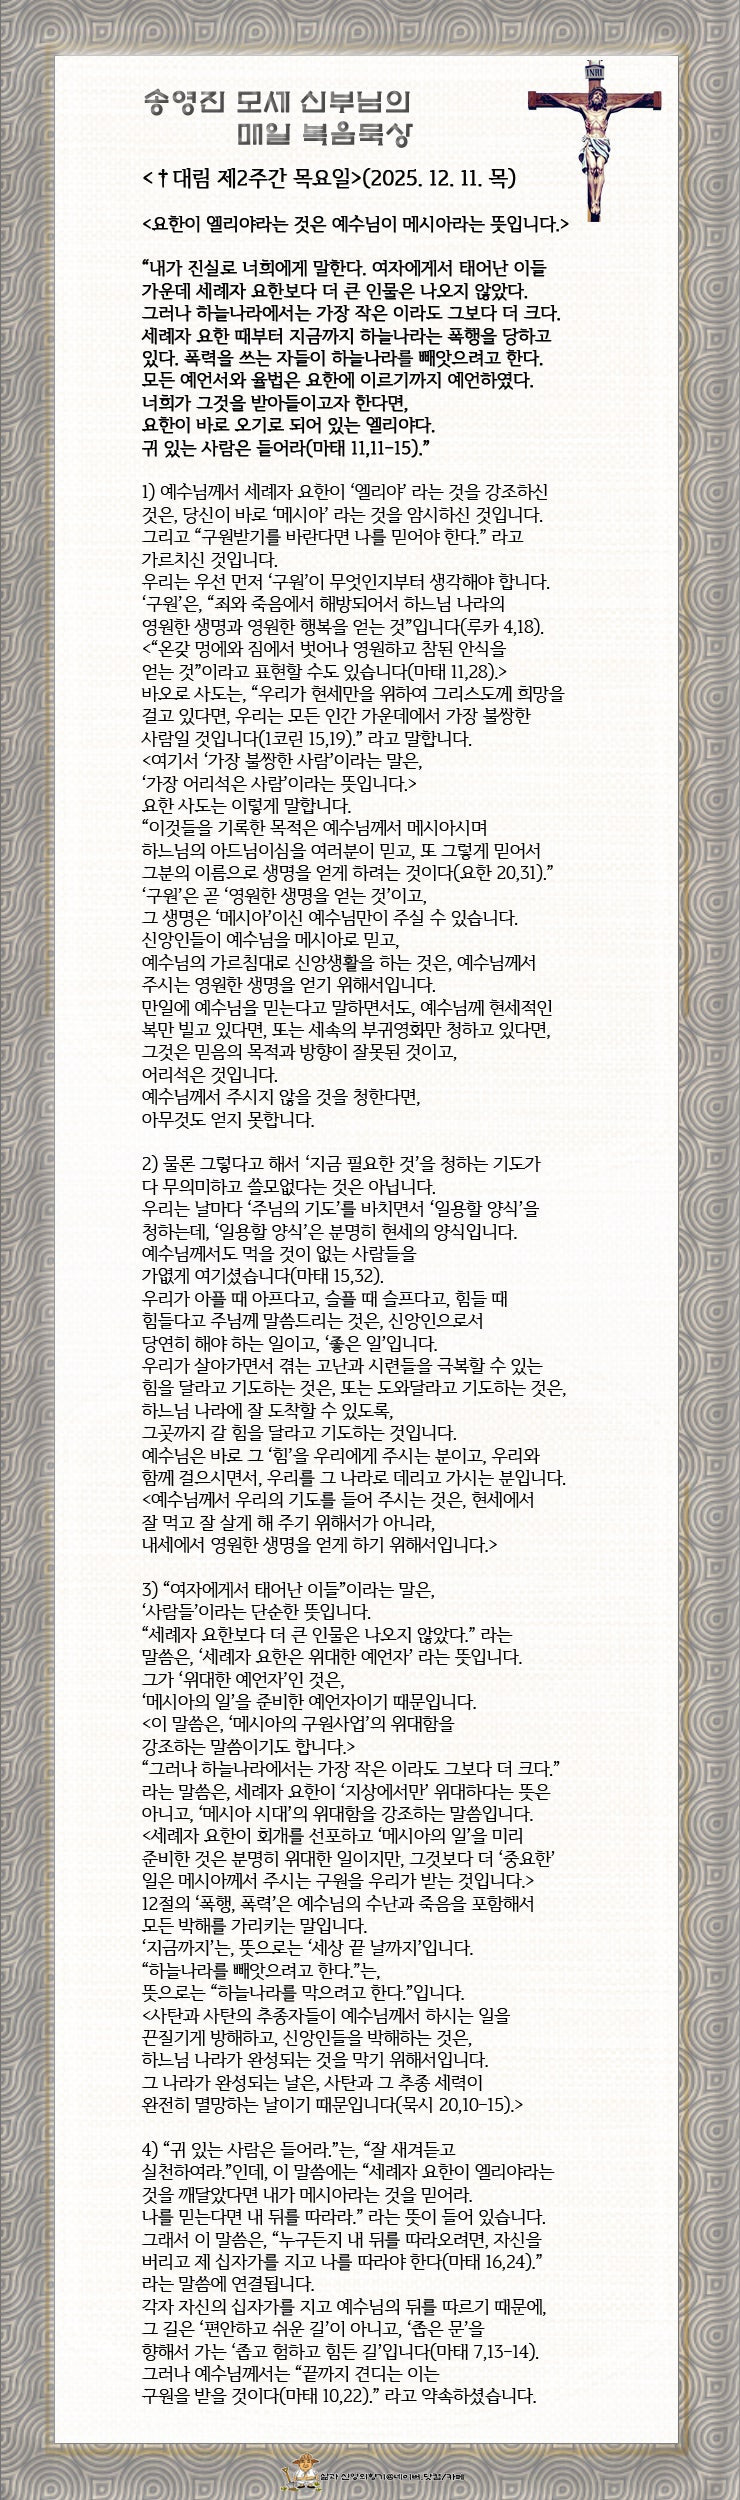 송영진 모세 신부님의
매일 복음묵상
INRI
<✝대림 제2주간 목요일>(2025. 12. 11. 목)
<요한이 엘리야라는 것은 예수님이 메시아라는 뜻입니다.>
“내가 진실로 너희에게 말한다. 여자에게서 태어난 이들
가운데 세례자 요한보다 더 큰 인물은 나오지 않았다.
그러나 하늘나라에서는 가장 작은 이라도 그보다 더 크다.
세례자 요한 때부터 지금까지 하늘나라는 폭행을 당하고
있다. 폭력을 쓰는 자들이 하늘나라를 빼앗으려고 한다.
모든 예언서와 율법은 요한에 이르기까지 예언하였다.
너희가 그것을 받아들이고자 한다면,
요한이 바로 오기로 되어 있는 엘리야다.
귀 있는 사람은 들어라(마태 11,11-15).”
1) 예수님께서 세례자 요한이 ‘엘리야’ 라는 것을 강조하신
것은, 당신이 바로 ‘메시아’ 라는 것을 암시하신 것입니다.
그리고 “구원받기를 바란다면 나를 믿어야 한다.” 라고
가르치신 것입니다.
우리는 우선 먼저 ‘구원’이 무엇인지부터 생각해야 합니다.
‘구원’은, “죄와 죽음에서 해방되어서 하느님 나라의
영원한 생명과 영원한 행복을 얻는 것”입니다(루카 4,18).
<“온갖 멍에와 짐에서 벗어나 영원하고 참된 안식을
얻는 것”이라고 표현할 수도 있습니다(마태 11,28).>
바오로 사도는, “우리가 현세만을 위하여 그리스도께 희망을
걸고 있다면, 우리는 모든 인간 가운데에서 가장 불쌍한
사람일 것입니다(1코린 15,19).” 라고 말합니다.
<여기서 ‘가장 불쌍한 사람’이라는 말은,
‘가장 어리석은 사람’이라는 뜻입니다.>
요한 사도는 이렇게 말합니다.
“이것들을 기록한 목적은 예수님께서 메시아시며
하느님의 아드님이심을 여러분이 믿고, 또 그렇게 믿어서
그분의 이름으로 생명을 얻게 하려는 것이다(요한 20,31).”
‘구원’은 곧 ‘영원한 생명을 얻는 것’이고,
그 생명은 ‘메시아’이신 예수님만이 주실 수 있습니다.
신앙인들이 예수님을 메시아로 믿고,
예수님의 가르침대로 신앙생활을 하는 것은, 예수님께서
주시는 영원한 생명을 얻기 위해서입니다.
만일에 예수님을 믿는다고 말하면서도, 예수님께 현세적인
복만 빌고 있다면, 또는 세속의 부귀영화만 청하고 있다면,
그것은 믿음의 목적과 방향이 잘못된 것이고,
어리석은 것입니다.
예수님께서 주시지 않을 것을 청한다면,
아무것도 얻지 못합니다.
2) 물론 그렇다고 해서 ‘지금 필요한 것’을 청하는 기도가
다 무의미하고 쓸모없다는 것은 아닙니다.
우리는 날마다 ‘주님의 기도’를 바치면서 ‘일용할 양식’을
청하는데, ‘일용할 양식’은 분명히 현세의 양식입니다.
예수님께서도 먹을 것이 없는 사람들을
가엾게 여기셨습니다(마태 15,32).
우리가 아플 때 아프다고, 슬플 때 슬프다고, 힘들 때
힘들다고 주님께 말씀드리는 것은, 신앙인으로서
당연히 해야 하는 일이고, ‘좋은 일’입니다.
우리가 살아가면서 겪는 고난과 시련들을 극복할 수 있는
힘을 달라고 기도하는 것은, 또는 도와달라고 기도하는 것은,
하느님 나라에 잘 도착할 수 있도록,
그곳까지 갈 힘을 달라고 기도하는 것입니다.
예수님은 바로 그 ‘힘’을 우리에게 주시는 분이고, 우리와
함께 걸으시면서, 우리를 그 나라로 데리고 가시는 분입니다.
<예수님께서 우리의 기도를 들어 주시는 것은, 현세에서
잘 먹고 잘 살게 해 주기 위해서가 아니라,
내세에서 영원한 생명을 얻게 하기 위해서입니다.>
3) “여자에게서 태어난 이들”이라는 말은,
‘사람들’이라는 단순한 뜻입니다.
“세례자 요한보다 더 큰 인물은 나오지 않았다.” 라는
말씀은, ‘세례자 요한은 위대한 예언자’ 라는 뜻입니다.
그가 ‘위대한 예언자’인 것은,
‘메시아의 일’을 준비한 예언자이기 때문입니다.
<이 말씀은, ‘메시아의 구원사업’의 위대함을
강조하는 말씀이기도 합니다.>
“그러나 하늘나라에서는 가장 작은 이라도 그보다 더 크다.”
라는 말씀은, 세례자 요한이 ‘지상에서만’ 위대하다는 뜻은
아니고, ‘메시아 시대’의 위대함을 강조하는 말씀입니다.
<세례자 요한이 회개를 선포하고 ‘메시아의 일’을 미리
준비한 것은 분명히 위대한 일이지만, 그것보다 더 ‘중요한’
일은 메시아께서 주시는 구원을 우리가 받는 것입니다.>
12절의 ‘폭행, 폭력’은 예수님의 수난과 죽음을 포함해서
모든 박해를 가리키는 말입니다.
‘지금까지’는, 뜻으로는 ‘세상 끝 날까지’입니다.
“하늘나라를 빼앗으려고 한다.”는,
뜻으로는 “하늘나라를 막으려고 한다.”입니다.
<사탄과 사탄의 추종자들이 예수님께서 하시는 일을
끈질기게 방해하고, 신앙인들을 박해하는 것은,
하느님 나라가 완성되는 것을 막기 위해서입니다.
그 나라가 완성되는 날은, 사탄과 그 추종 세력이
완전히 멸망하는 날이기 때문입니다(묵시 20,10-15).>
4) “귀 있는 사람은 들어라.”는, “잘 새겨듣고
실천하여라.”인데, 이 말씀에는 “세례자 요한이 엘리야라는
것을 깨달았다면 내가 메시아라는 것을 믿어라.
나를 믿는다면 내 뒤를 따라라.” 라는 뜻이 들어 있습니다.
그래서 이 말씀은, “누구든지 내 뒤를 따라오려면, 자신을
버리고 제 십자가를 지고 나를 따라야 한다(마태 16,24).”
라는 말씀에 연결됩니다.
각자 자신의 십자가를 지고 예수님의 뒤를 따르기 때문에,
그 길은 ‘편안하고 쉬운 길’이 아니고, ‘좁은 문’을
향해서 가는 ‘좁고 험하고 힘든 길’입니다(마태 7,13-14).
그러나 예수님께서는 “끝까지 견디는 이는
구원을 받을 것이다(마태 10,22).” 라고 약속하셨습니다.
삶과 신앙의향기@네이버.닷컴/카페